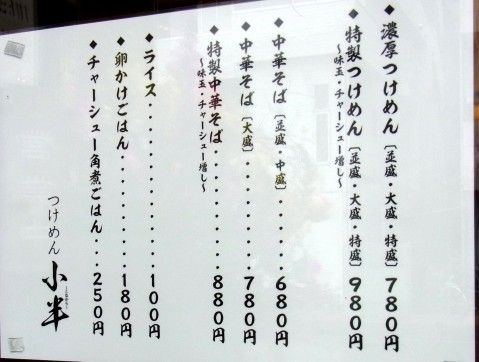 ◆濃厚つけめん〔並盛・大盛・特盛〕780円
◆特製つけめん〔並盛・大盛・特盛〕980円
～味玉・チャーシュー増し～
◆中華そば〔並盛・中盛〕・・・・・・680円
◆中華そば〔大盛〕・・・・・・・・780円
◆特製中華そば・・・・・・・・・880円
～味玉・チャーシュー増し～
◆ライス・・・・・・・・・・・・100円
◆卵かけごはん・・・・・・・・・180円
◆チャーシュー角煮ごはん・・・・250円
つけめん 小半